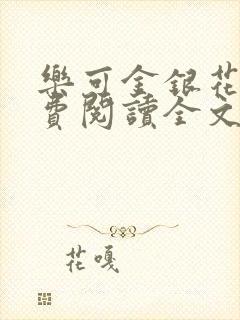 樂可金銀花
費閱讀全文
花嘎